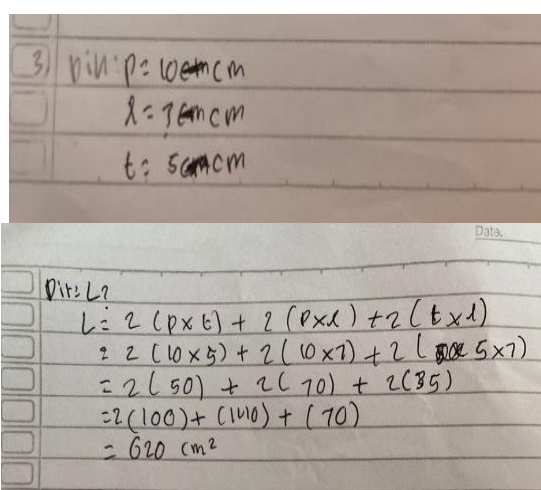 3) Dik: p = 10 cm
l = 7 cm
t = 5 cm
Date.
Dit: L?
L = 2 (p x t) + 2 (p x l) + 2 (t x l)
= 2 (10 x 5) + 2 (10 x 7) + 2 (5 x 7)
= 2 (50) + 2 (70) + 2 (35)
= 2 (100) + (140) + (70)
= 620 cm²